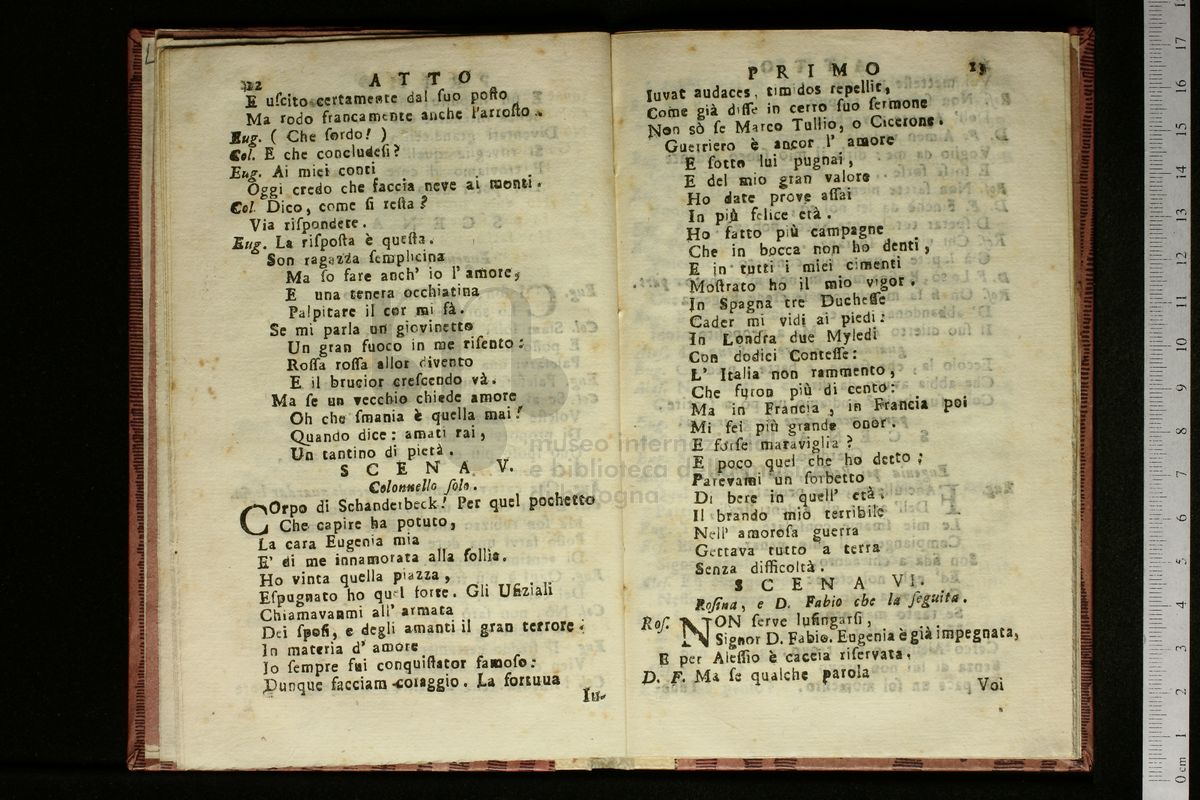 12 A T T O
E uſcito certamente dal ſuo poſto
Ma rodo francamente anche l'arroſto.
Eug. ( Che ſordo! )
Col. E che concludeſi?
Eug. Ai miei conti
Oggi credo che faccia neve ai monti.
Col. Dico, come ſi reſta?
Via riſpondete.
Eug. La riſpoſta è queſta.
Son ragazza ſemplicina
Ma ſo fare anch' io l'amore,
E una tenera occhiatina
Palpitare il cor mi fà.
Se mi parla un giovinetto
Un gran fuoco in me riſento:
Roſſa roſſa allor divento
E il brucior creſcendo và.
Ma ſe un vecchio chiede amore
Oh che ſmania è quella mai!
Quando dice: amati rai,
Un tantino di pietà.
S C E N A V.
Colonnello ſolo.
COrpo di Schanderbeck! Per quel pochetto
Che capire ha potuto,
La cara Eugenia mia
E' di me innamorata alla follia.
Ho vinta quella piazza,
Eſpugnato ho quel forte. Gli Ufiziali
Chiamavanmi all' armata
Dei ſpoſi, e degli amanti il gran terrore:
In materia d' amore
Io ſempre fui conquiſtator famoſo:
Dunque facciam coraggio. La fortuua
Iu-
P R I M O 13
Iuvat audaces, timidos repellit,
Come già diſſe in certo ſuo ſermone
Non sò ſe Marco Tullio, o Cicerone.
Guerriero è ancor l' amore
E ſotto lui pugnai,
E del mio gran valore
Ho date prove aſſai
In più felice età.
Ho fatto più campagne
Che in bocca non ho denti,
E in tutti i miei cimenti
Moſtrato ho il mio vigor.
In Spagna tre Ducheſſe
Cader mi vidi ai piedi:
In Londra due Myledi
Con dodici Conteſſe:
L' Italia non rammento,
Che furon più di cento:
Ma in Francia, in Francia poi
Mi fei più grande onor.
E forſe maraviglia?
E poco quel che ho detto:
Parevami un ſorbetto
Di bere in quell' età:
Il brando mio terribile
Nell' amoroſa guerra
Gettava tutto a terra
Senza difficoltà.
S C E N A VI.
Roſina, e D. Fabio che la ſeguita.
Roſ. NON ſerve luſingarſi,
Signor D. Fabio. Eugenia è già impegnata,
E per Aleſſio è caccia riſervata.
D. F. Ma ſe qualche parola
Voi